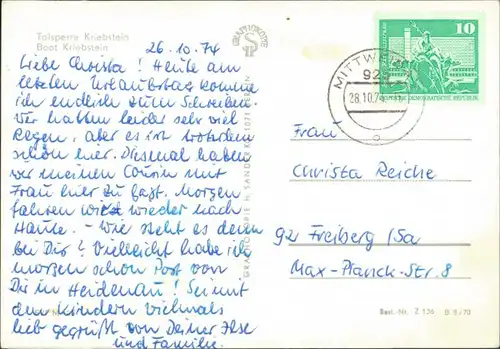 Talsperre Kriebstein
Boot Kriebstein
26.10.74
Liebe Christa! Heute am
letzten Urlaubstag komme
ich endlich zum Schreiben.
Wir haben leider sehr viel
Regen, aber es ist trotzdem
schön hier. Diesmal haben
wir meinen Cousin mit
Frau hier zu Gast. Morgen
fahren wir wieder nach
Hause. - Wie steht es denn
bei Dir? Vielleicht habe ich
morgen schon Post von
Dir in Heidenau! Sei mit
den Kindern vielmals
lieb gegrüßt von Deiner Ilse
und Familie.
GRAPHOKOPIE H. SANDER KG
10
DEUTSCHE DEMOKRATISCHE REPUBLIK
MITTW
28.10.74
Frau
Christa Reiche
92 Freiberg/Sa
Max-Planck-Str. 8
Best.-Nr. Z 136 B 8/70